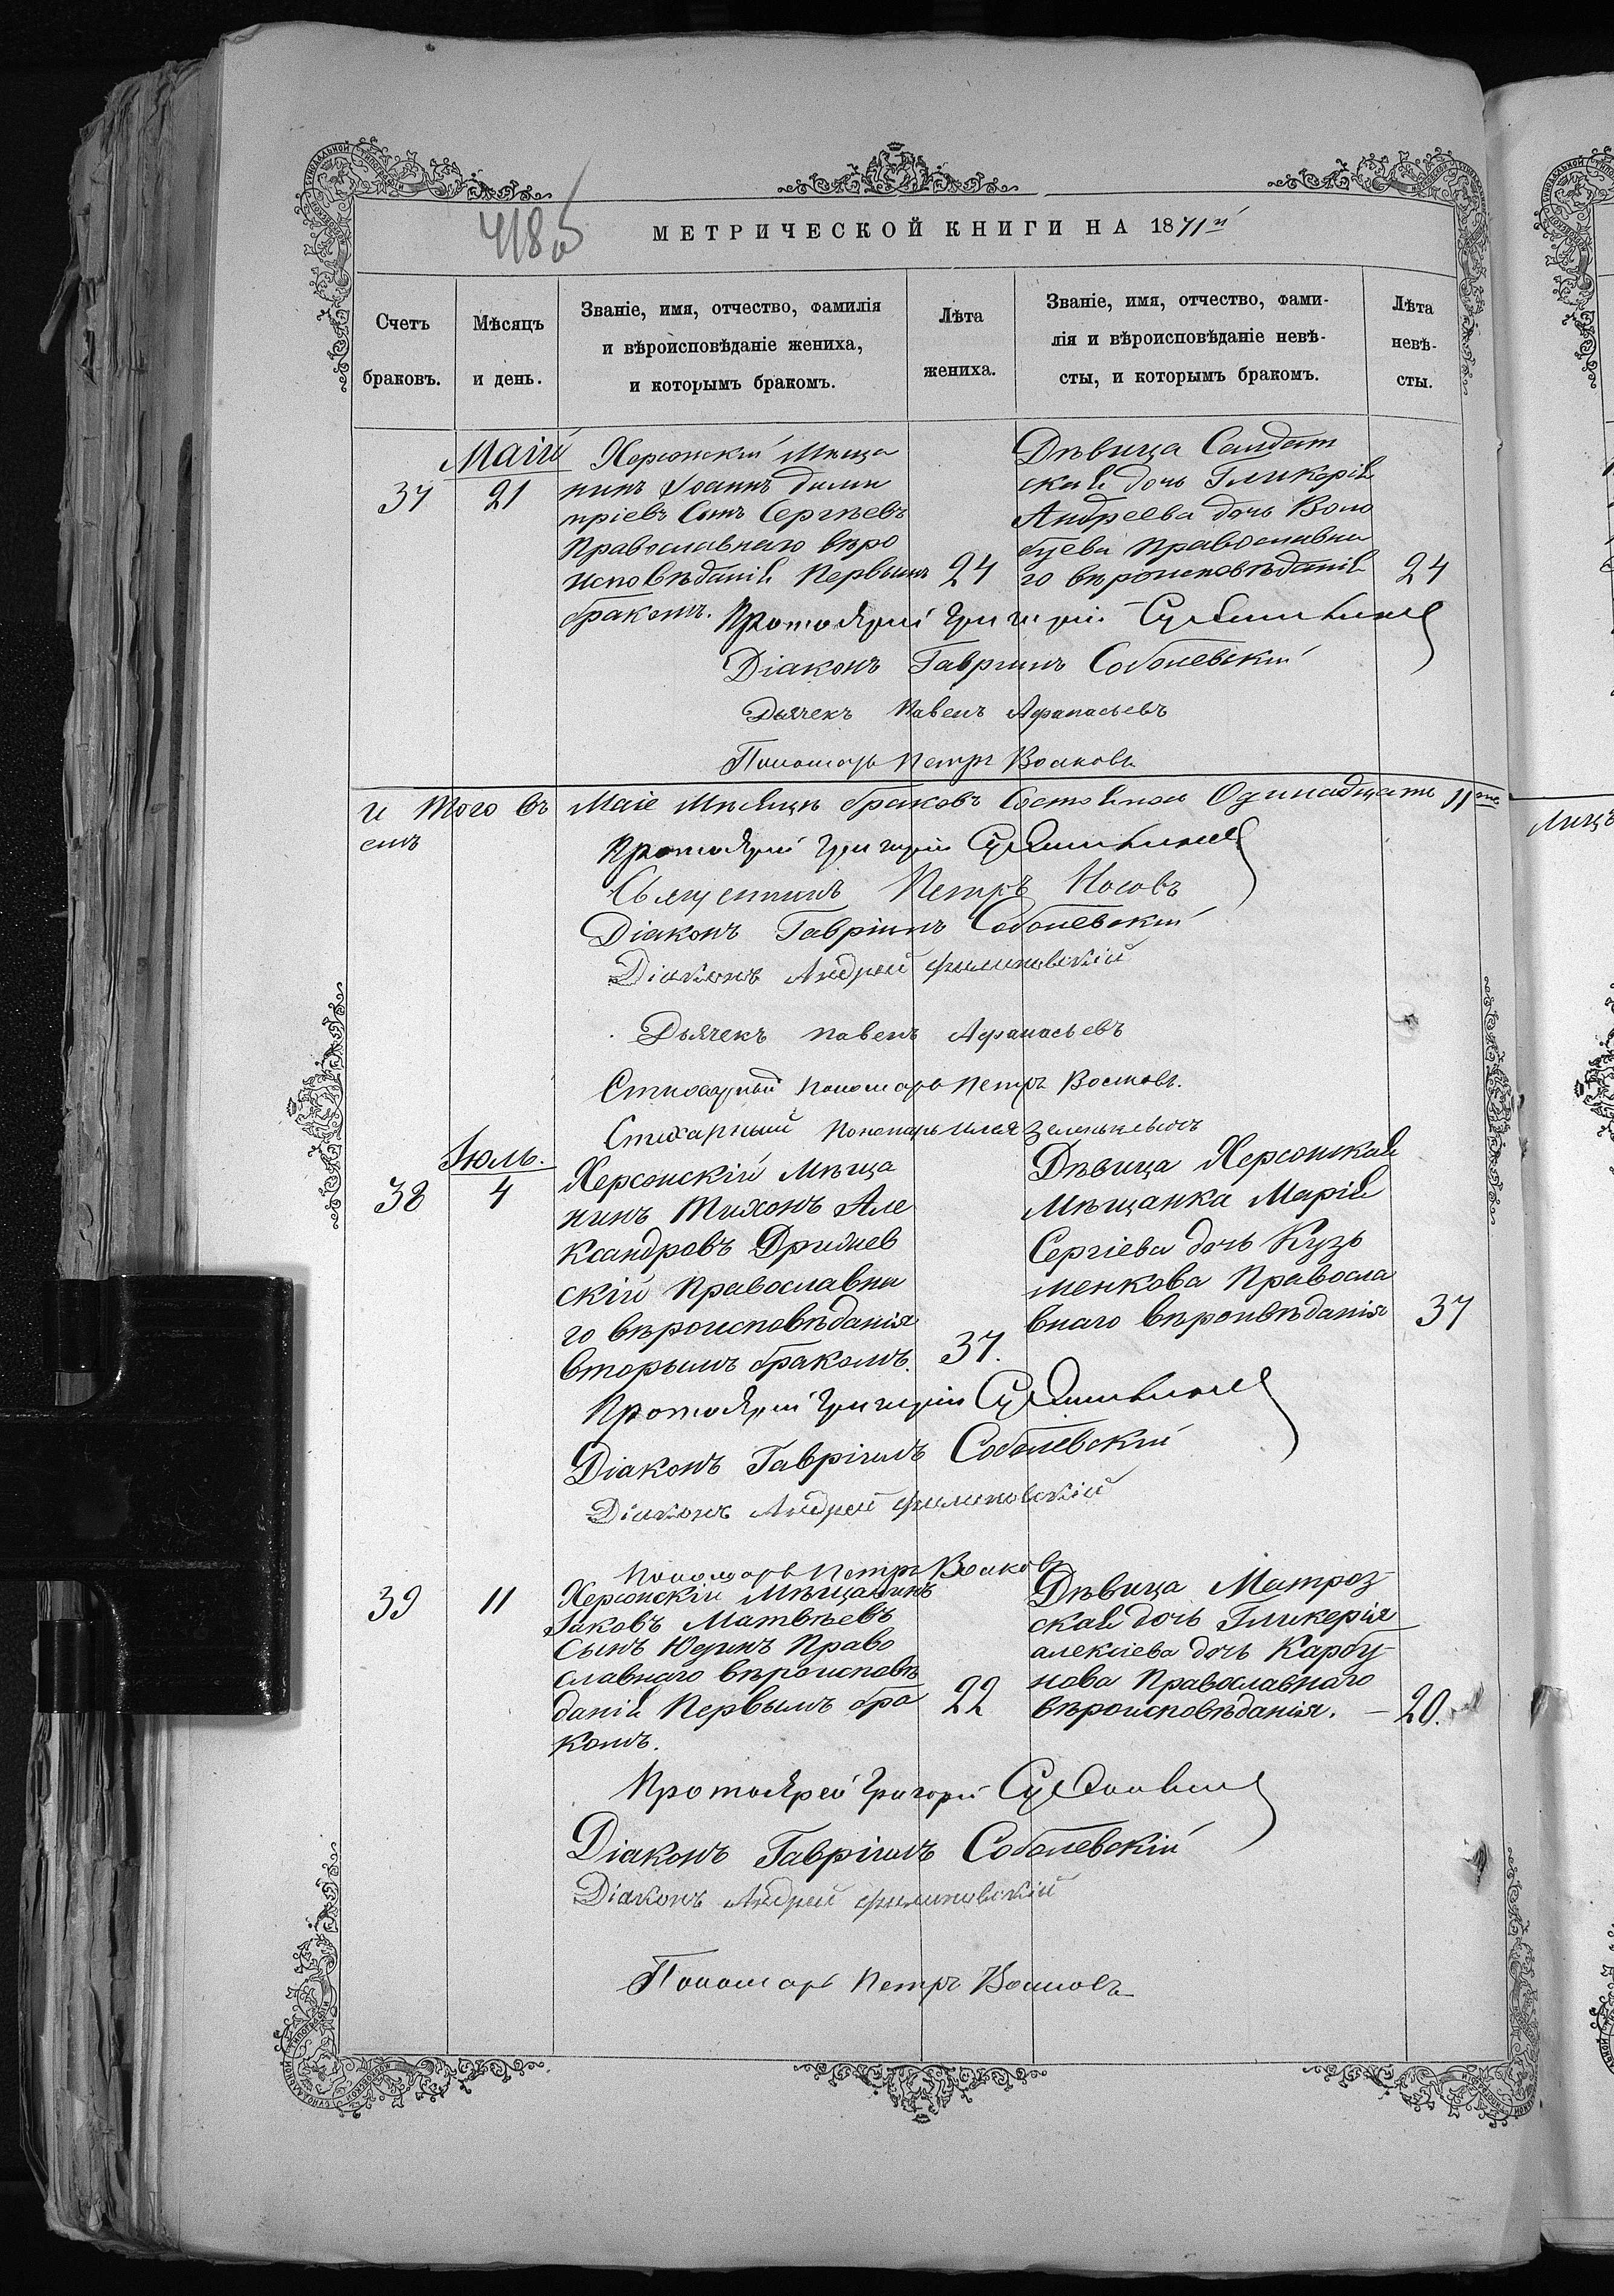 418 об
МЕТРИЧЕСКОЙ КНИГИ НА 1871й
Счетъ браковъ.
Мѣсяцъ и день.
Званіе, имя, отчество, фамилія
и вѣроисповѣданіе жениха,
и которымъ бракомъ.
Лѣта жениха.
Званіе, имя, отчество, фами-
лія и вѣроисповѣданіе невѣ-
сты, и которымъ бракомъ.
Лѣта невѣ-
сты.
Маій
37 21
Херсонскій Мѣща
нинъ Іоаннъ Дими
тріевъ Сынъ Сергѣевъ
Православнаго вѣро
исповѣданія Первымъ 24
бракомъ.
Дѣвица Солдат
ская дочь Гликерія
Андреева дочь
Православна
го вѣроисповѣданія 24
Протоіерей Григорій
Діаконъ Гавріилъ Соболевскій
Дьячекъ Павелъ Афанасьевъ
Пономарь Петръ Волковъ
И того въ Маіе Мѣсяцѣ браковъ Состоялось Одинадцать 11ть
Протоіерей Григорій
Священникъ Петръ Носовъ
Діаконъ Гавріилъ Соболевскій
Діаконъ Андрей Филиповскій
Дьячекъ Павелъ Афанасьевъ
Стихарный Пономарь Петръ Волковъ.
Стихарный Пономарь Илья
Іюль.
38 4
Херсонскій Мѣща
нинъ Тихонъ Але
ксандровъ
скій Православна
го вѣроисповѣданія
вторымъ бракомъ. 37.
Дѣвица Херсонская
Мѣщанка Марія
Сергіева дочь Кузь
менкова Правосла
внаго вѣроивѣданія 37
Протоіерей Григорій
Діаконъ Гавріилъ Соболевскій
Діаконъ Андрей Филиповскій
Пономарь Петръ Волковъ
39 11
Херсонскій Мѣщанинъ
Іаковъ Матвѣевъ
Сынъ Юдинъ Право
славнаго вѣроисповѣ
данія Первымъ бра 22
комъ.
Дѣвица Матроз-
ская дочь Гликерія
алексіева дочь Карбу-
нова Православнаго
вѣроисповѣданія. - 20.
Протоіерей Григорій
Діаконъ Гавріилъ Соболевскій
Діаконъ Андрей Филиповскій
Пономарь Петръ Волковъ